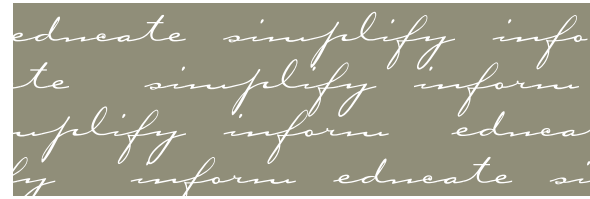 educate simplify info
te simplify inform
mplify inform educa
fy inform educate si